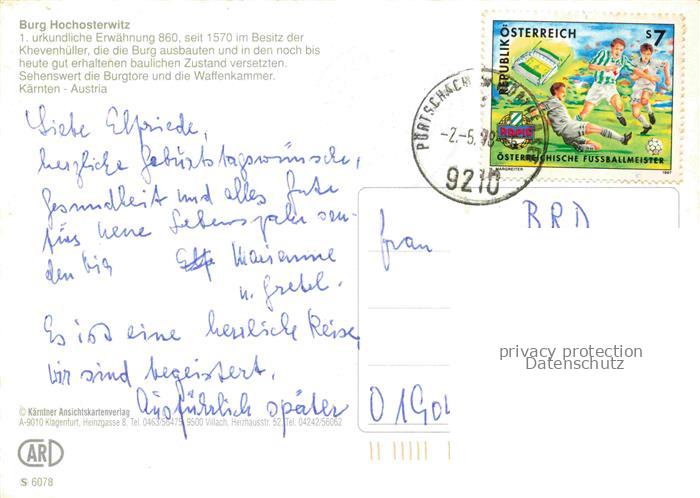 Burg Hochosterwitz
1. urkundliche Erwähnung 860, seit 1570 im Besitz der
Khevenhüller, die die Burg ausbauten und in den noch bis
heute gut erhaltenen baulichen Zustand versetzten.
Sehenswert die Burgtore und die Waffenkammer.
Kärnten - Austria
REPUBLIK ÖSTERREICH
S 7
RAPID
ÖSTERREICHISCHE FUSSBALLMEISTER
MARGREITER
1997
PÖRTSCHACH
-2.-5.98
9210
Liebe Elfriede,
herzliche Geburtstagswünsche,
Gesundheit und alles Gute
fürs neue Lebensjahr sen-
den Dir Marianne
u. Gretel.
Es ist eine herrliche Reise,
wir sind begeistert.
Ausführlich später
BRD
Frau
01904
privacy protection
Datenschutz
© Kärntner Ansichtskartenverlag
A-9010 Klagenfurt, Heinzgasse 8, Tel. 0463/56475, 9500 Villach, Herzhausstr. 52, Tel. 04242/56062
CARD
S 6078